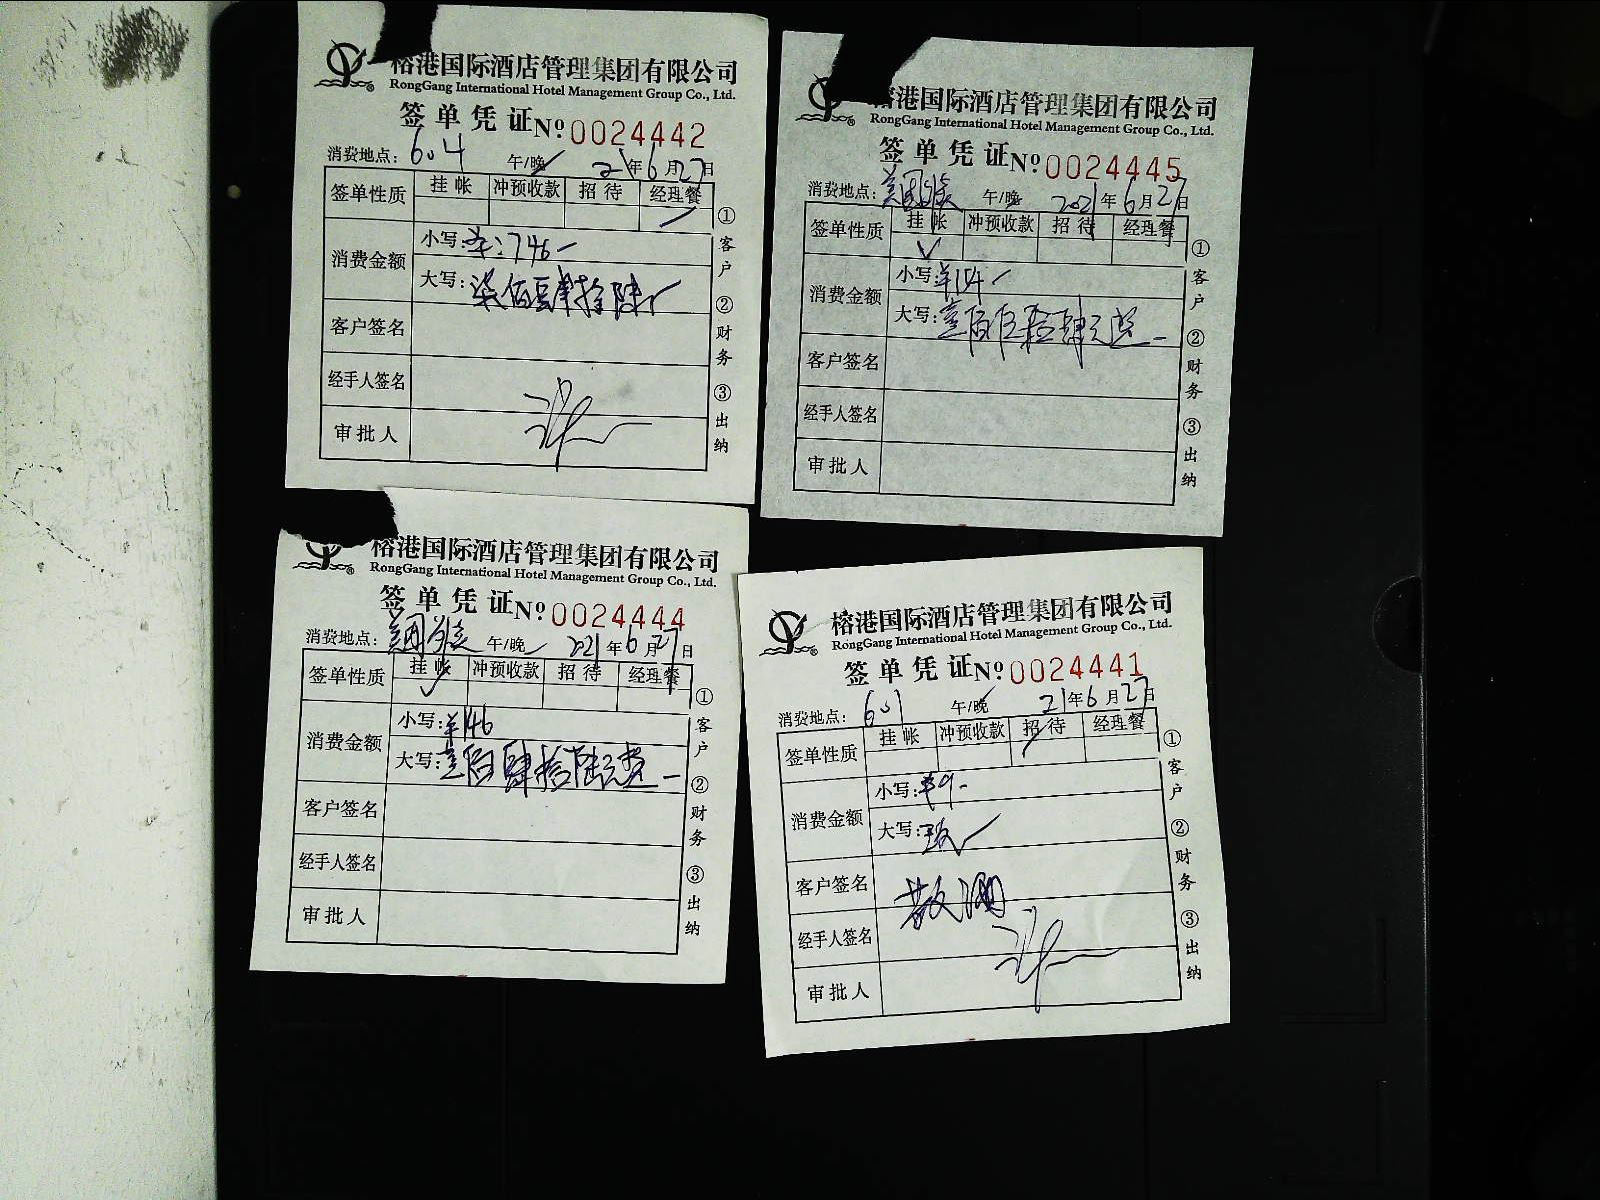 榕港国际酒店管理集团有限公司
RongGang International Hotel Management Group Co., Ltd.
签单凭证 Nº 0024442
消费地点: 604 午/晚 21年6月27日
签单性质 挂帐 冲预收款 招待 经理餐
消费金额 小写: 746
大写: 柒佰肆拾陆
客户签名
经手人签名
审批人
①客户 ②财务 ③出纳
榕港国际酒店管理集团有限公司
RongGang International Hotel Management Group Co., Ltd.
签单凭证 Nº 0024445
消费地点: 午/晚 2021年6月27日
签单性质 挂帐 冲预收款 招待 经理餐
消费金额 小写: ¥154
大写: 壹佰伍拾肆元整
客户签名
经手人签名
审批人
①客户 ②财务 ③出纳
榕港国际酒店管理集团有限公司
RongGang International Hotel Management Group Co., Ltd.
签单凭证 Nº 0024444
消费地点: 午/晚 2021年6月27日
签单性质 挂帐 冲预收款 招待 经理餐
消费金额 小写: ¥146
大写: 壹佰肆拾陆元整
客户签名
经手人签名
审批人
①客户 ②财务 ③出纳
榕港国际酒店管理集团有限公司
RongGang International Hotel Management Group Co., Ltd.
签单凭证 Nº 0024441
消费地点: 601 午/晚 21年6月27日
签单性质 挂帐 冲预收款 招待 经理餐
消费金额 小写: ¥9
大写: 玖
客户签名
经手人签名
审批人
①客户 ②财务 ③出纳